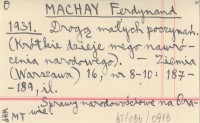 MACHAY Ferdynand
1931. Drogą małych poczynań.
(Krótkie dzieje mego nawró-
cenia narodowego). – Ziemia
(Warszawa) 16, nr 8-10: 187-
-189, il.
Sprawy narodowościowe na Ora-
wie.
MT